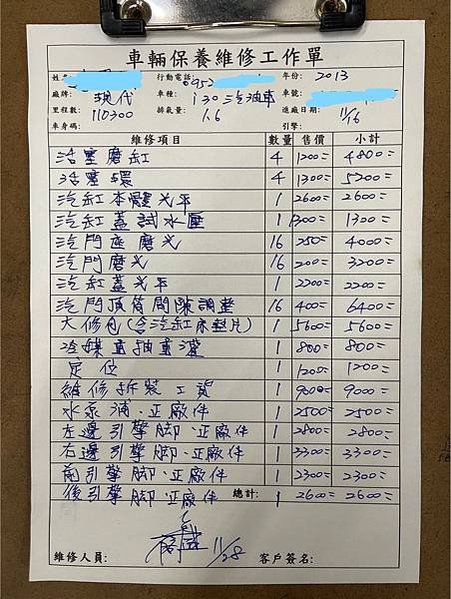 車輛保養維修工作單
姓名: 行動電話: 0952 年份: 2013
廠牌: 現代 車種: i30 汽油車 車號:
里程數: 110300 排氣量: 1.6 進廠日期: 11/16
車身碼: 引擎:
維修項目 數量 售價 小計
活塞磨缸 4 1200= 4800=
活塞環 4 1300= 5200=
汽缸本體光平 1 2600= 2600=
汽缸蓋試水壓 1 1300= 1300=
汽門座磨光 16 250= 4000=
汽門磨光 16 200= 3200=
汽缸蓋光平 1 2200= 2200=
汽門頂筒間隙調整 16 400= 6400=
大修包(含汽缸床墊片) 1 5600= 5600=
冷媒重抽重灌 1 800= 800=
定位 1 1200= 1200=
維修拆裝工資 1 9000= 9000=
水泵浦.正廠件 1 2500= 2500=
左邊引擎腳.正廠件 1 2800= 2800=
右邊引擎腳.正廠件 1 3300= 3300=
前引擎腳.正廠件 1 2300= 2300=
後引擎腳.正廠件 總計: 1 2600= 2600=
11/28
維修人員: 客戶簽名: